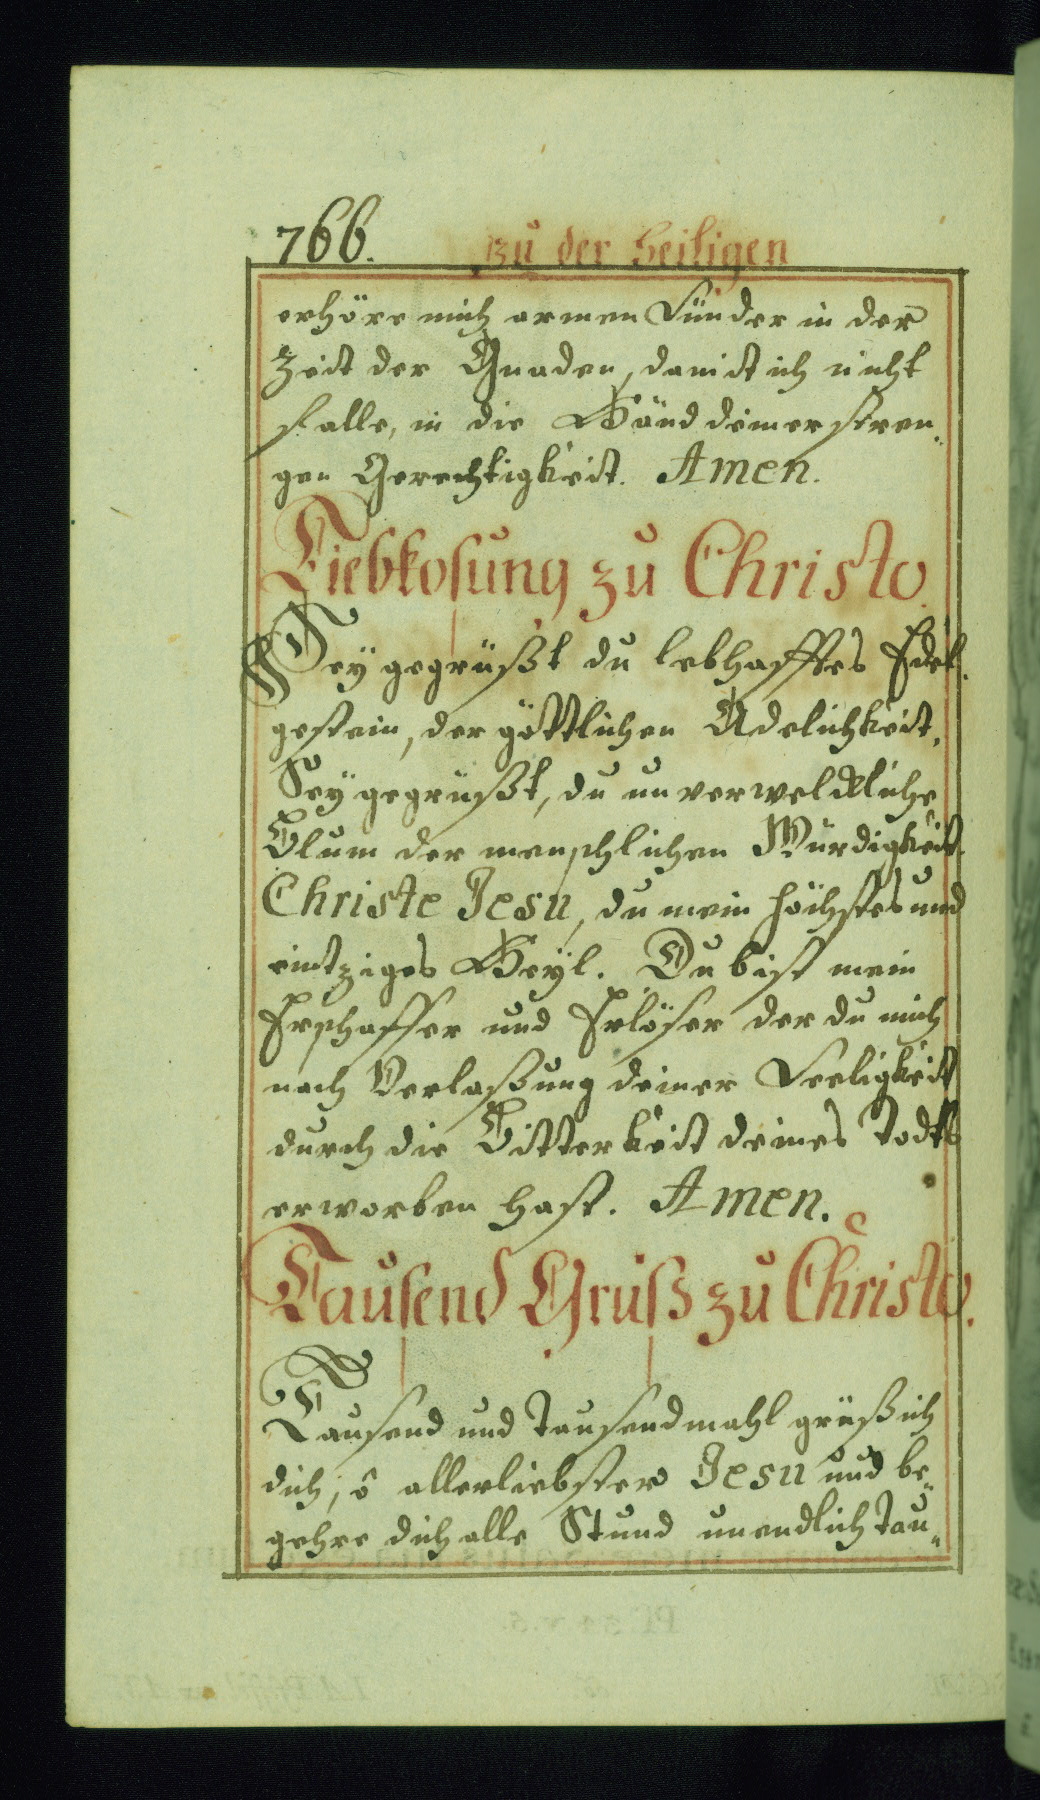 766. zu der heiligen
erhöre mich armen Sünder in der
Zeit der Gnaden, damit ich nicht
falle, in die Händ deiner stren„
gen Gerechtigkeit. Amen.
Liebkosung zu Christo.
Sey gegrüßt du lebhafftes Edel„
gestein, der göttlichen Adelichkeit,
Sey gegrüßt, du unverweldkliche
Blum der menschlichen Würdigkeit.
Christe Jesu, du mein höchstes und
eintziges Heyl. Du bist mein
Erschaffer und Erlöser der du mich
nach Verlaßung deiner Seeligkeit
durch die Bitterkeit deines Todts
erworben hast. Amen.
Tausend Gruß zu Christo.
Tausend und Tausendmahl grüß ich
dich, ô allerliebster Jesu und be„
gehre dich alle Stund unendlich Tau„